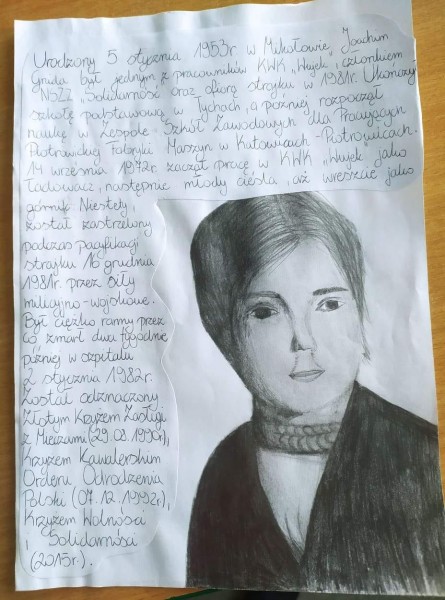 Urodzony 5 stycznia 1953r w Mikołowie, Joachim
Gnida był jednym z pracowników KWK „Wujek", członkiem
NSZZ „Solidarność" oraz ofiarą strajku w 1981r. Ukończył
szkołę podstawową w Tychach, a później rozpoczął
naukę w Zespole Szkół Zawodowych dla Pracujących
Piotrowickiej Fabryki Maszyn w Katowicach-Piotrowicach.
14 września 1972r zaczął pracę w KWK „Wujek" jako
ładowacz, następnie młody cieśla, aż wreszcie jako
górnik. Niestety,
został zastrzelony
podczas pacyfikacji
strajku 16 grudnia
1981r. przez siły
milicyjno-wojskowe.
Był ciężko ranny przez
co zmarł dwa tygodnie
później w szpitalu
2 stycznia 1982r.
Został odznaczony
Złotym Krzyżem Zasługi
z Mieczami (29.08.1990r),
Krzyżem Kawalerskim
Orderu Odrodzenia
Polski (07.12.1992r.),
Krzyżem Wolności
i Solidarności
(2015r.).